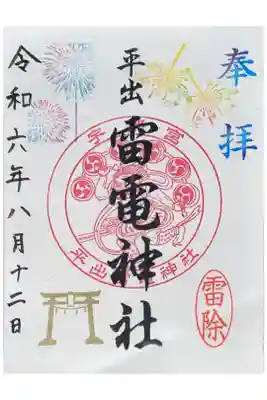 奉拝
宇都宮
平出雷電神社
平出 神社
雷除
令和六年八月十二日